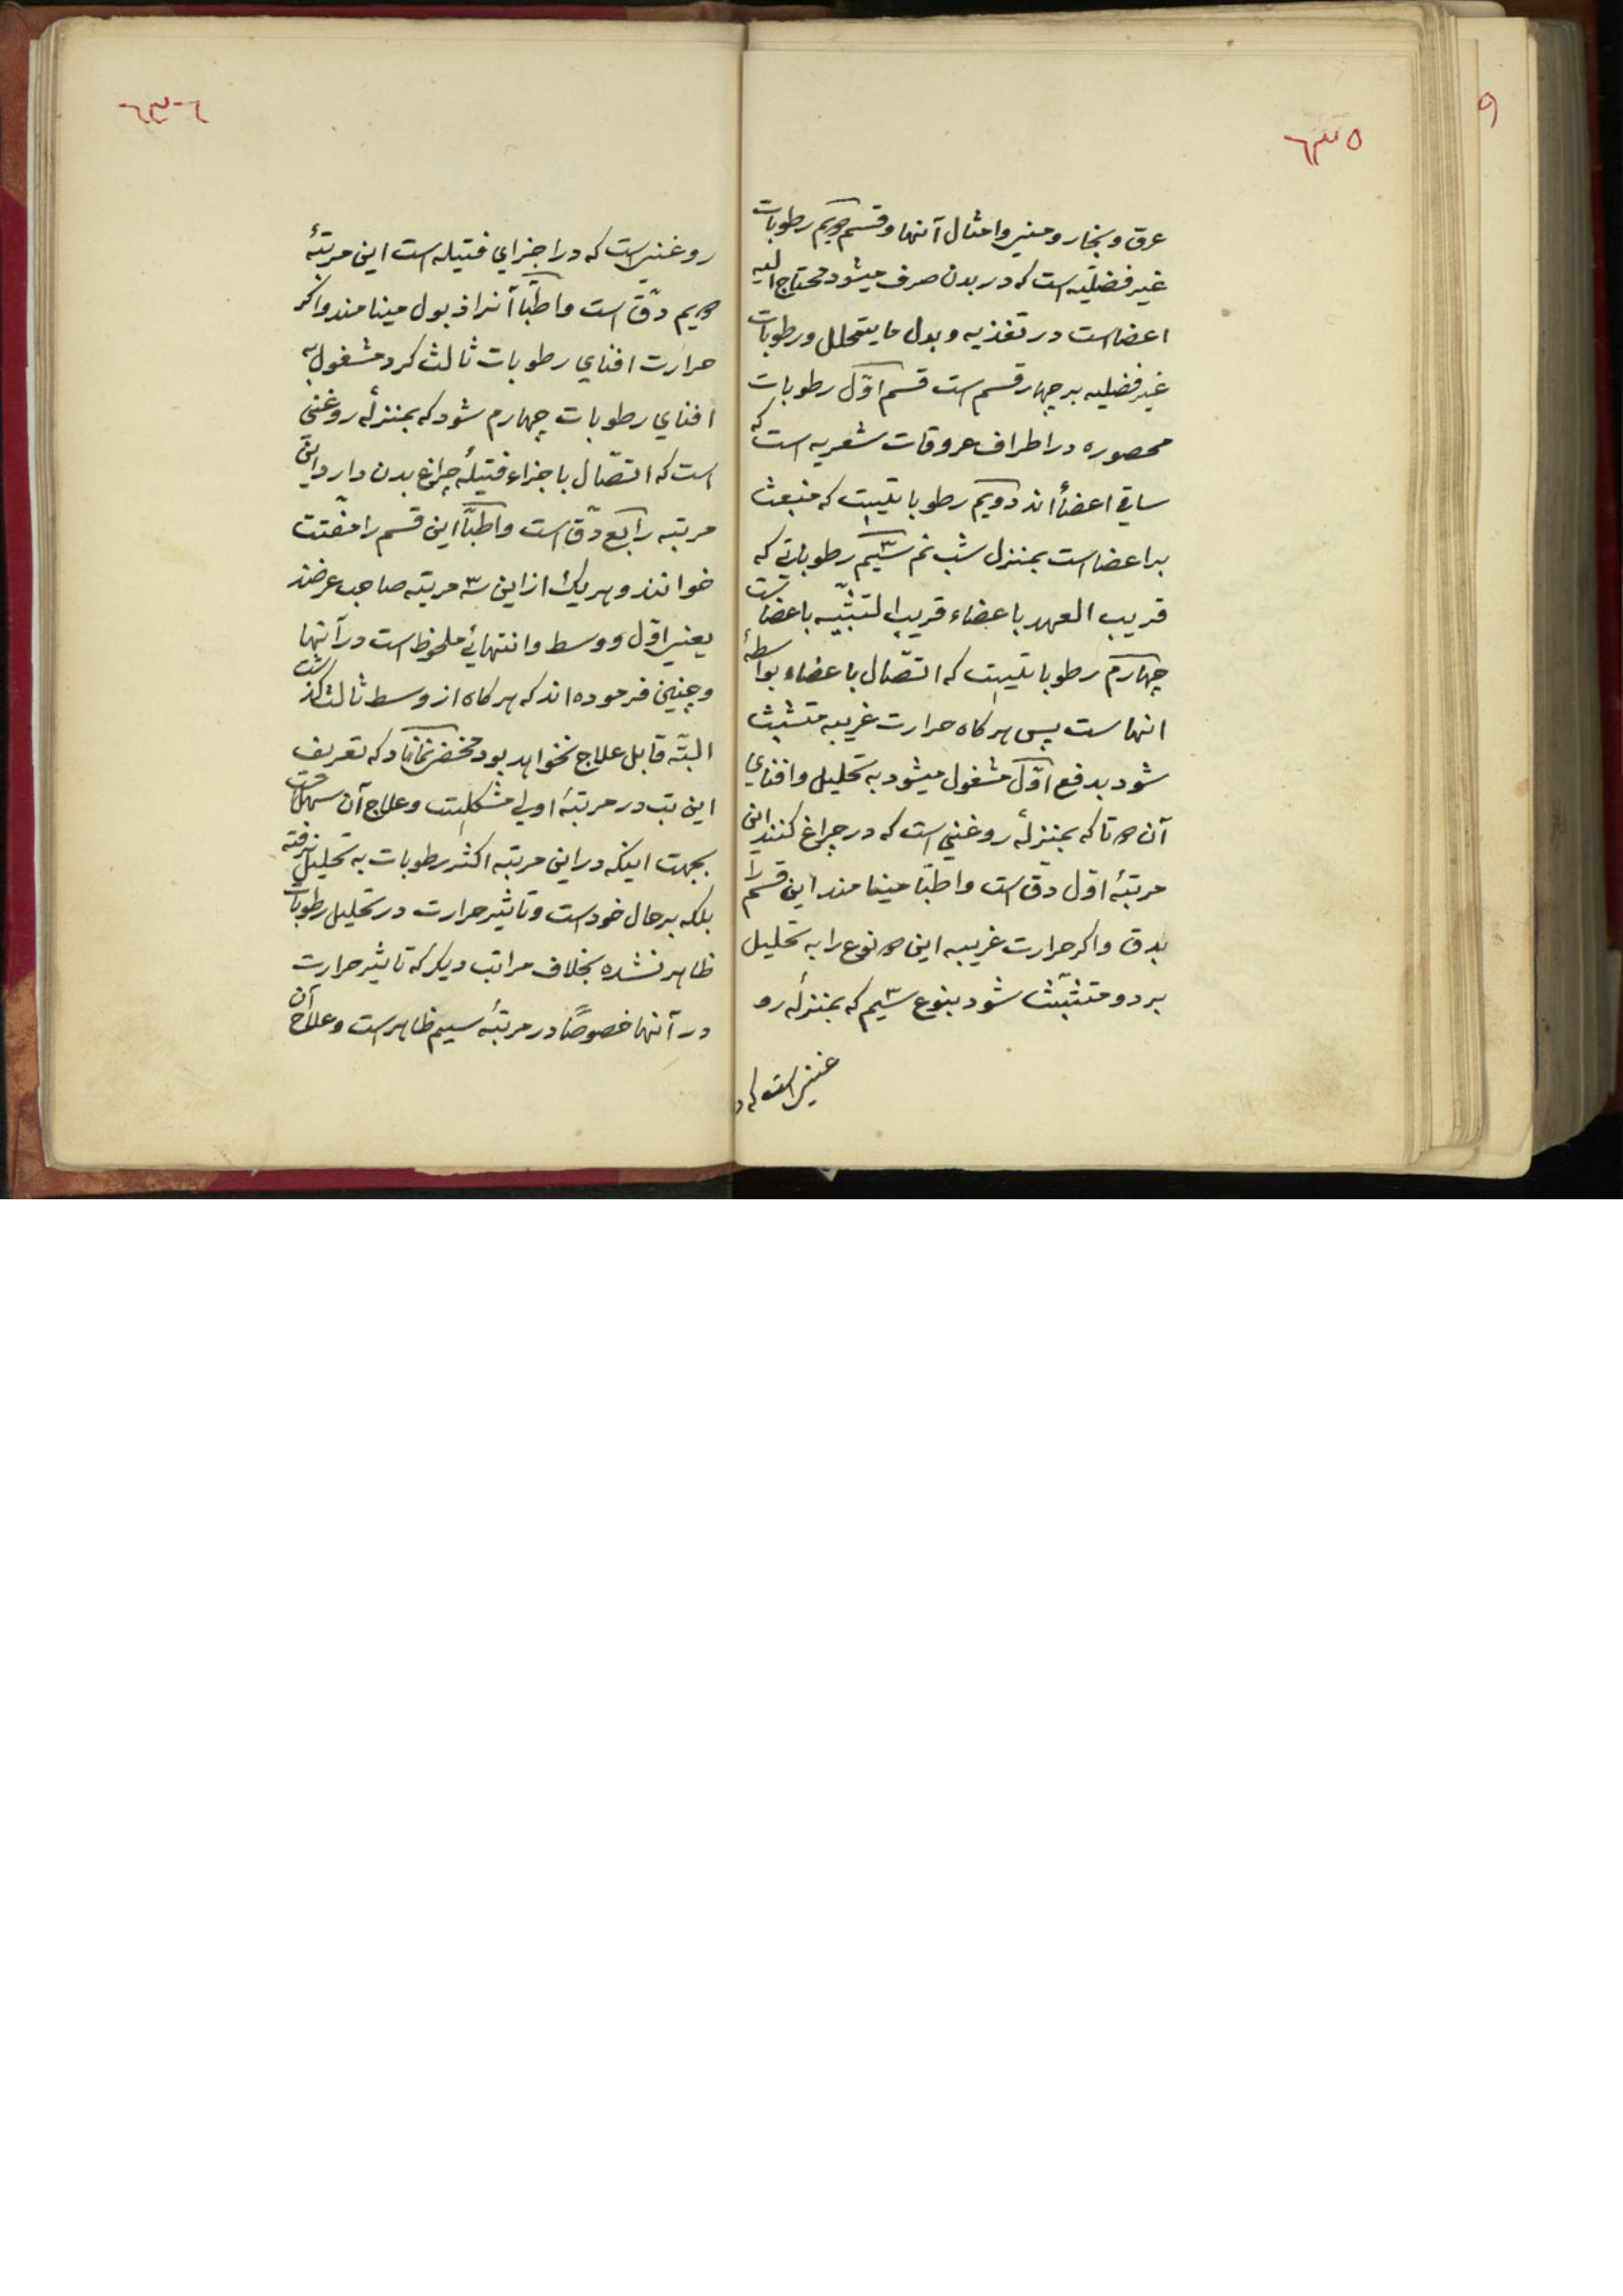 ٦٣٥
عرق و بخار و منی و امثال آنها و قسم دویم رطوبات
غیر فضلیه است که در بدن صرف میشود و محتاج الیه
اعضاست در تغذیه و بدل ما یتحلل و رطوبات
غیر فضلیه بر چهار قسم است قسم اوّل رطوبات
محصوره در اطراف عروقات شعریه است که
ساقی اعضأ اند دویم رطوباتیست که منبعث
بر اعضاست بمنزل شب نم سیم رطوباتی که
قریب العهد باعضاء قریب التشبّیه باعضاست
چهارم رطوباتیست که اتصّال باعضاء بواسطهٔ
انهاست پس هر کاه حرارت غریبه متشبث
شود بدفع اوّل مشغول میشود به تحلیل و افنای
آن دو تا که بمنزلهٔ روغنی است که در چراغ کنند این
مرتبهٔ اوّل دق است و اطبّا مینامند این قسم را
بدق و اکر حرارت غریبه این دو نوع را به تحلیل
برد و متشبّث شود بنوع سیم که بمنزلهٔ رو
غنی است که د
٦٣٦
روغنی است که در اجزای فتیله است این مرتبهٔ
دویم دقّ است و اطبّا آنرا ذبول مینامند و اکر
حرارت افنای رطوبات ثالث کرد مشغول به
افنای رطوبات چهارم شود که بمنزلهٔ روغنی
است که اتصّال باجزاء فتیلهٔ چراغ بدن دارد این
مرتبه رابع دقّ است و اطبّا این قسم را مفتت
خوانند و هر یک از این سه مرتبه صاحب عرضند
یعنی اوّل و وسط و انتهائی ملحوظ است در آنها
و چنین فرموده اند که هر کاه از وسط ثالث کذشت
البتّه قابل علاج نخواهد بود مخفی نماناد که تعریف
این تب در مرتبهٔ اولی مشکلست و علاج آن سهل است
بجهت اینکه در این مرتبه اکثر رطوبات به تحلیل نرفته
بلکه بر حال خود است و تاثیر حرارت در تحلیل رطوبات
ظاهر نشده بخلاف مراتب دیکر که تاثیر حرارت
در آنها خصوصًا در مرتبهٔ سیم ظاهر است و علاج آن